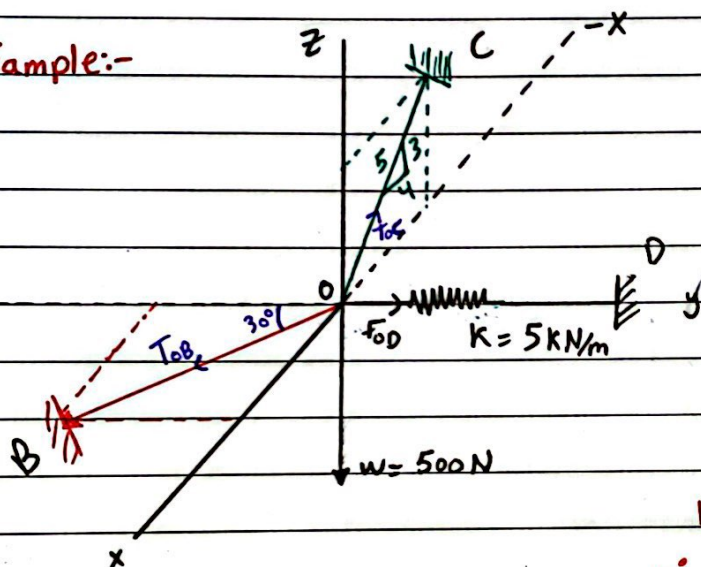 ample:-
Z
C
-X
5 3
4
TOC
O
D
30°
FOD
K = 5 kN/m
y
TOB
B
w = 500 N
x